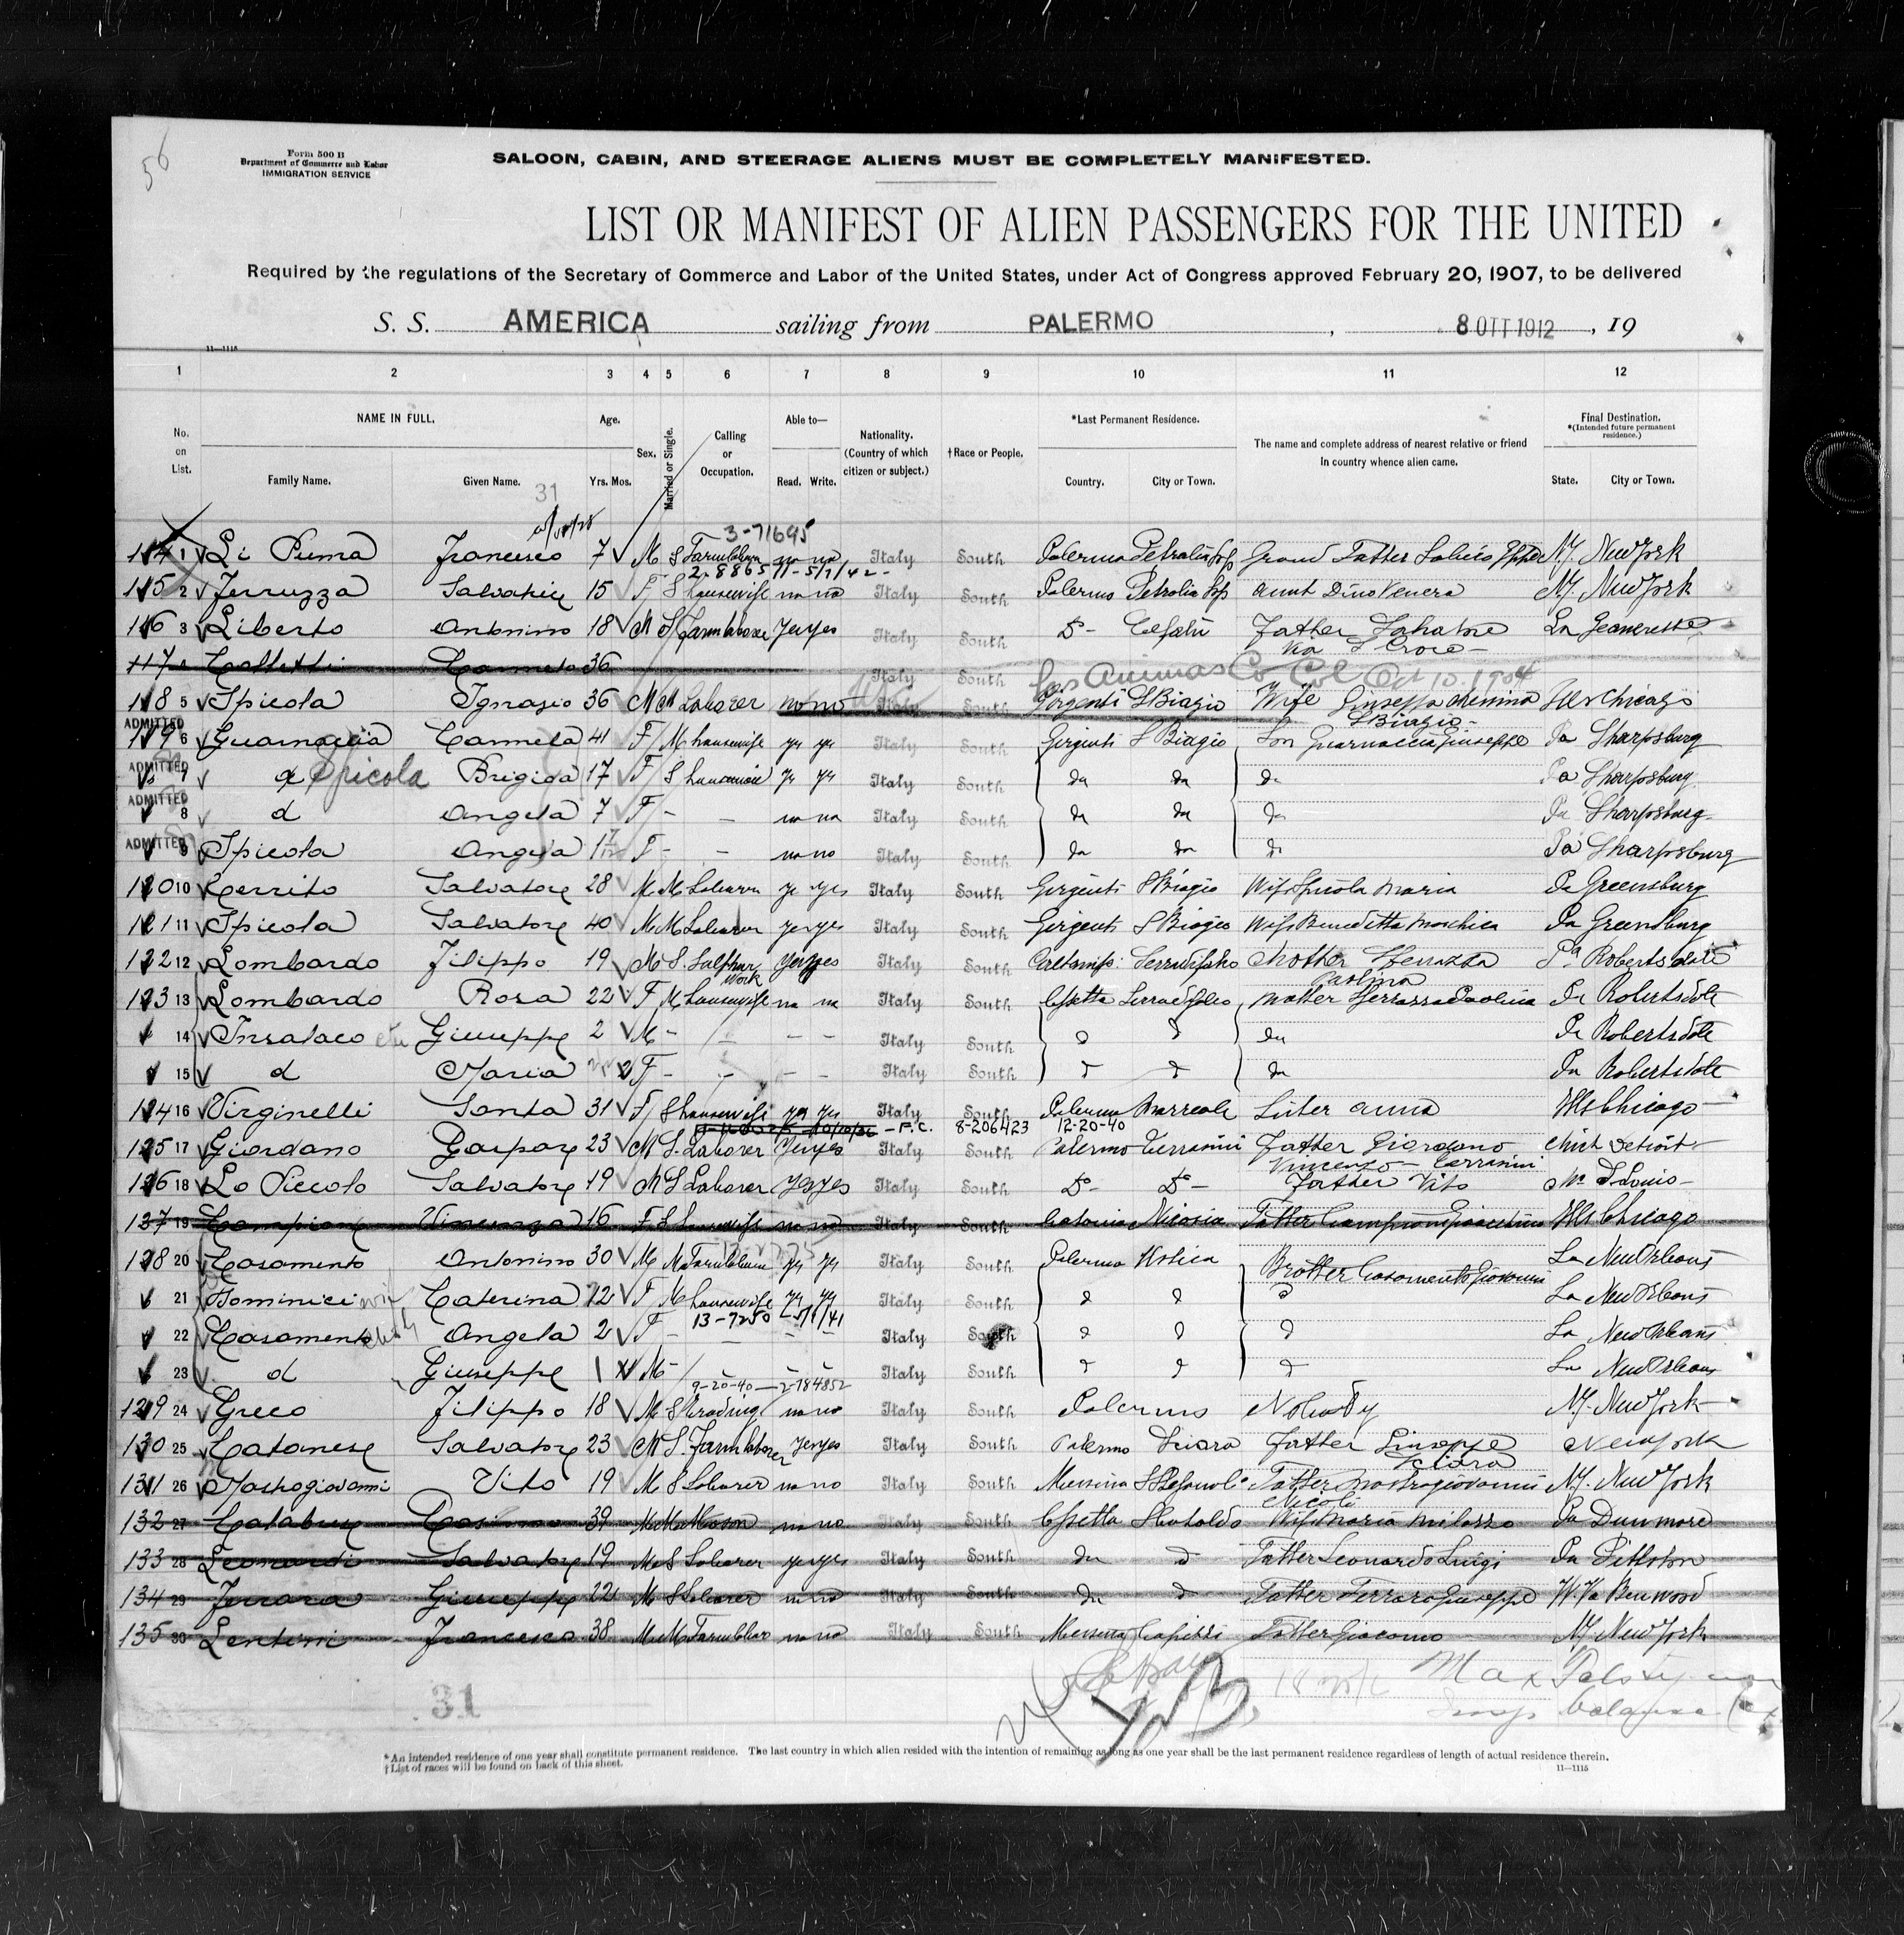 56
Form 500 B
Department of Commerce and Labor
IMMIGRATION SERVICE
SALOON, CABIN, AND STEERAGE ALIENS MUST BE COMPLETELY MANIFESTED.
LIST OR MANIFEST OF ALIEN PASSENGERS FOR THE UNITED
Required by the regulations of the Secretary of Commerce and Labor of the United States, under Act of Congress approved February 20, 1907, to be delivered
S. S. AMERICA sailing from PALERMO, 8 OTT 1912, 19
11—1115
1 2 3 4 5 6 7 8 9 10 11 12
No. on List. NAME IN FULL. Family Name. Given Name. Age. Yrs. Mos. Sex. Married or Single. Calling or Occupation. Able to— Read. Write. Nationality. (Country of which citizen or subject.) †Race or People. *Last Permanent Residence. Country. City or Town. The name and complete address of nearest relative or friend in country whence alien came. Final Destination. *(Intended future permanent residence.) State. City or Town.
31
3-71695
114 1 Li Puma Francesco 7 M S Farmlaborer no no Italy South Palermo Petralia Grand Father N.Y. New York
2-8865
115 2 Ferruzza Salvatrice 15 F S housewife no no Italy South Palermo Petralia Aunt Dino Venera N.Y. New York
116 3 Liberto Antonino 18 M S farmlaborer yes yes Italy South Do- Cefalù Father Salvatore La Jeanerette
Via S Croce
117 4 Carmelo 36 Italy South
Las Animas Co Col Oct 10. 1904
118 5 Spicola Ignazio 36 M M Laborer no no Italy South Girgenti S Biagio Wife Giuseppa Messina Ills Chicago
S Biagio-
ADMITTED
119 6 Guarnaccia Carmela 41 F M housewife yes yes Italy South Girgenti S Biagio Son Guarnaccia Giuseppe Pa Sharpsburg
ADMITTED
7 d Spicola Brigida 17 F S Italy South do do do Pa Sharpsburg
ADMITTED
8 d Angela 7 F - - no no Italy South do do do Pa Sharpsburg
ADMITTED
9 Spicola Angela F - - no no Italy South do do do Pa Sharpsburg
120 10 Cerrito Salvatore 28 M M Laborer yes yes Italy South Girgenti S Biagio Wife Spicola Maria Pa Greensburg
121 11 Spicola Salvatore 40 M M Laborer yes yes Italy South Girgenti S Biagio Wife Benedetta Pa Greensburg
122 12 Lombardo Filippo 19 M S. Sulphur Work yes yes Italy South Mother Pa Robertsdale
Paolina
123 13 Lombardo Rosa 22 F M housewife no no Italy South Mother Paolina Pa Robertsdale
14 Insalaco Giuseppe 2 M - - - Italy South d d do Pa Robertsdale
15 d Maria F - - - - Italy South d d do Pa Robertsdale
124 16 Virginelli Santa 31 F S housewife yes yes Italy South Palermo Sister Anna Ills Chicago
-F.C. 8-206423 12-20-40
125 17 Giordano Gaspare 23 M S. Laborer yes yes Italy South Palermo Terrasini Father Giordano Mich Detroit
Vincenzo - Terrasini
126 18 Lo Piccolo Salvatore 19 M S Laborer yes yes Italy South Do- Do- Father Vito Mo St Louis-
127 19 Campione Vincenza 16 F S housewife no no Italy South Catania Nicosia Father Campione Ills Chicago
128 20 Casamento Antonino 30 M M Farmlaborer yes yes Italy South Palermo Ustica Brother Casamento Giovanni La New Orleans
21 Dominici wife Caterina F M housewife yes yes Italy South d d d La New Orleans
13-7250 -5/1/41
22 Casamento child Angela 2 F - - - - Italy South d d d La New Orleans
23 d Giuseppe 1 M - - - Italy South d d d La New Orleans
9-20-40-2-784852
129 24 Greco Filippo 18 M S no no Italy South Palermo Nobody N.Y. New York
130 25 Catanese Salvatore 23 M S. Farmlaborer yes yes Italy South Palermo Sciara Father Giuseppe New York
Sciara
131 26 Mastrogiovanni Vito 19 M S Laborer no no Italy South Messina Father Mastrogiovanni N.Y. New York
Nicolò
132 27 Calabrese 39 M M Mason no no Italy South Wife Maria Milazzo Pa Dunmore
133 28 Leonardi Salvatore 19 M S Laborer yes yes Italy South do d Father Leonardo Luigi Pa Pittston
134 29 Ferrara Giuseppe 22 M S Laborer no no Italy South do d Father Ferraro Giuseppe W.Va Benwood
135 30 Lentini Francesco 38 M M Farmlabor no no Italy South Messina Capizzi Father Giacomo N.Y. New York
31
*An intended residence of one year shall constitute permanent residence. The last country in which alien resided with the intention of remaining as long as one year shall be the last permanent residence regardless of length of actual residence therein.
†List of races will be found on back of this sheet.
11—1115